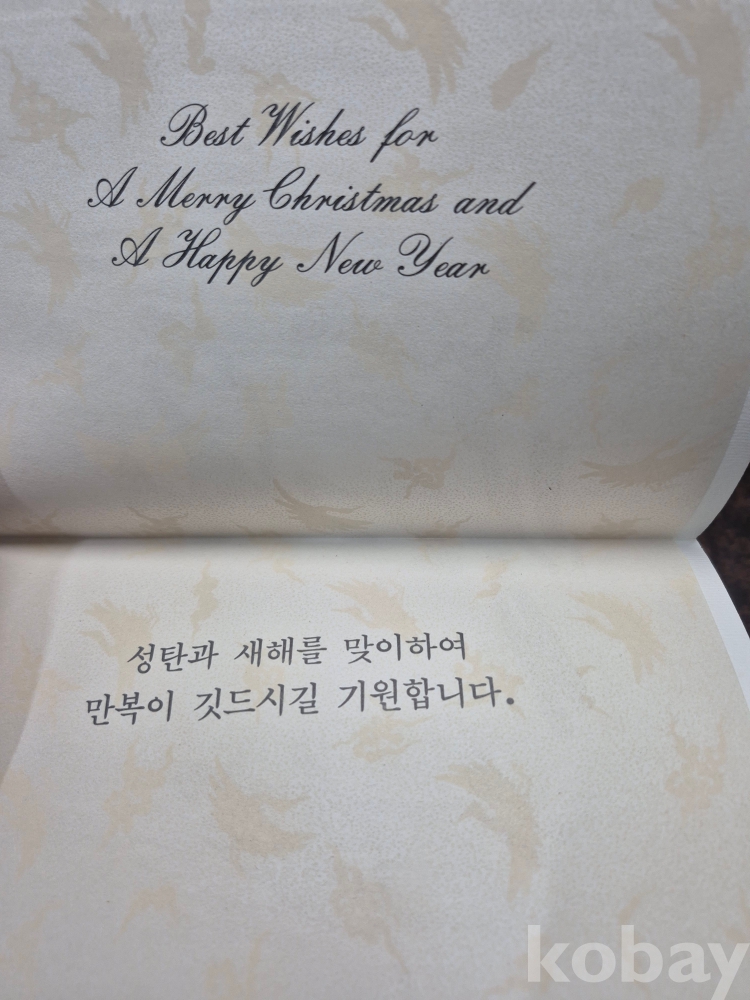 Best Wishes for
A Merry Christmas and
A Happy New Year
성탄과 새해를 맞이하여
만복이 깃드시길 기원합니다.
kobay